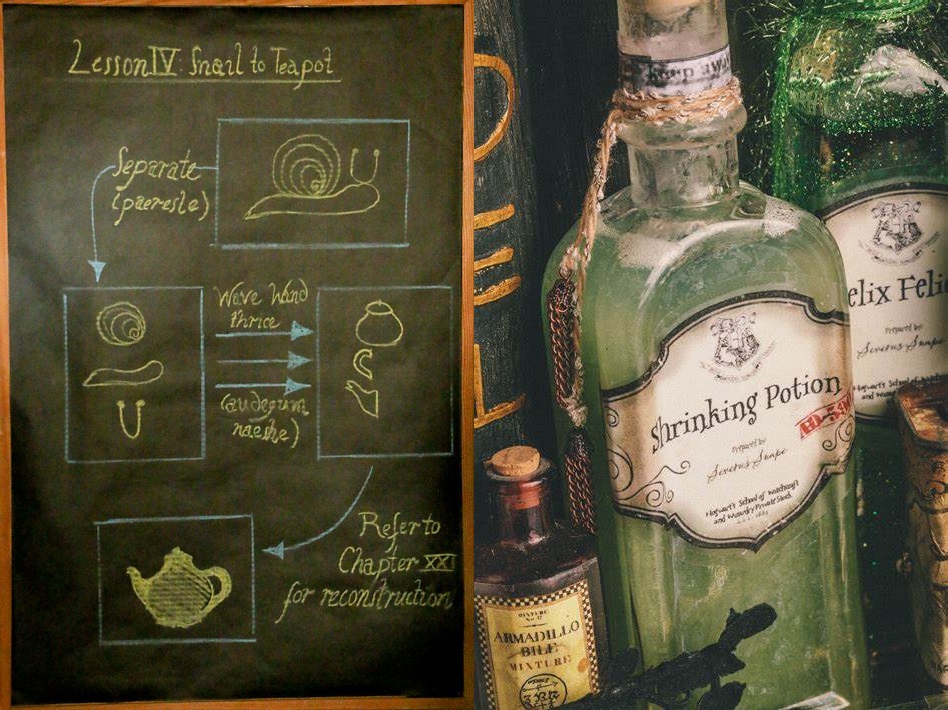 Lesson IV: Snail to Teapot
Separate
(paeresle)
Wave Wand
thrice
(audegum
naeshe)
Refer to
Chapter XXI
for reconstruction
keep away
Shrinking Potion
Prepared by
Severus Snape
Hogwart's School of Witchcraft
and Wizardry Private Stock
elix Feli
Prepared by
Severus Snape
Hogwart's School of
and
MIXTURE
No 17
ARMADILLO
BILE
MIXTURE